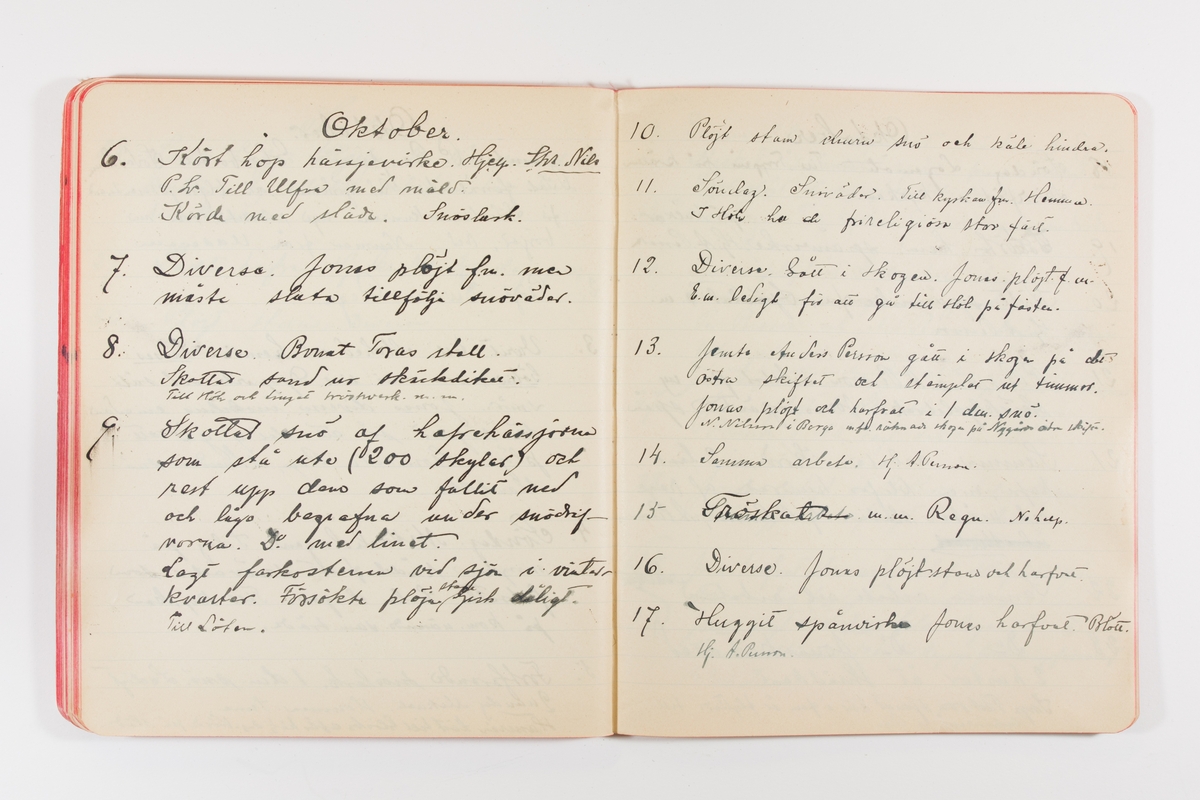 Oktober.
6. Kört hop hässjevirke. Hjelp. Skr. Nils
P. Lv. Till Ulfra med mäld.
Körde med släde. Snöslask.
7. Diverse. Jonas plöjt f.m. men
måste sluta tillfölje snöväder.
8. Diverse. Bonat Toras stall.
Skottat sand ur
Till Höl och tröskverk. m.m.
9. Skottat snö af hafrehässjorna
som stå ute (200 skylar) och
rest upp dem som fallit ned
och lågo begrafna under snödrif-
vorna. D:o med linet.
Lagt farkosterna vid sjön i vinter-
kvarter. Försökte plöja gick dåligt.
Till Löten.
10. Plöjt snö och käle hindra.
11. Söndag. Snöväder. Till kyrkan fm. Hemma.
I Höle ha de frireligiösa stor fäst.
12. Diverse. Gått i skogen. Jonas plöjt f.m.
E.m. ledigt för att gå till Höle på fästen.
13. Jemte Anders Persson gått i skogen på det
östra skiftet och stämplat ut timmer.
Jonas plöjt och harfvat i 1 dm. snö.
N. Nilsson i Berga skogen på skifte.
14. Samma arbete. Hj. A. Persson.
15 Tröskat m.m. Regn. N. help.
16. Diverse. Jonas plöjt stam och harfvat.
17. Huggit spånvirke Jonas harfvat. Blött.
Hj. A. Persson.